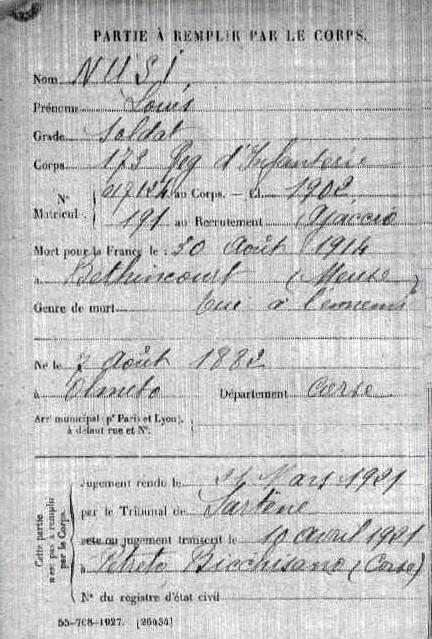 PARTIE À REMPLIR PAR LE CORPS.
Nom NUSI
Prénoms Louis
Grade Soldat
Corps 173 Reg d'Infanterie
N° au Corps. — Cl. 1902
Matricul. 191 au Recrutement Ajaccio
Mort pour la France le : 30 Août 1914
à Bethincourt (Meuse)
Genre de mort Tué à l'ennemi
Né le 7 Août 1882
à Olmeto Département Corse
Arrt municipal (pr Paris et Lyon),
à défaut rue et N°.
Cette partie
n'est pas à remplir
par le Corps.
Jugement rendu le Mars 1921
par le Tribunal de Sartène
acte ou jugement transcrit le 10 avril 1921
à Petreto Bicchisano (Corse)
N° du registre d'état civil
55-708-1927. [26434]